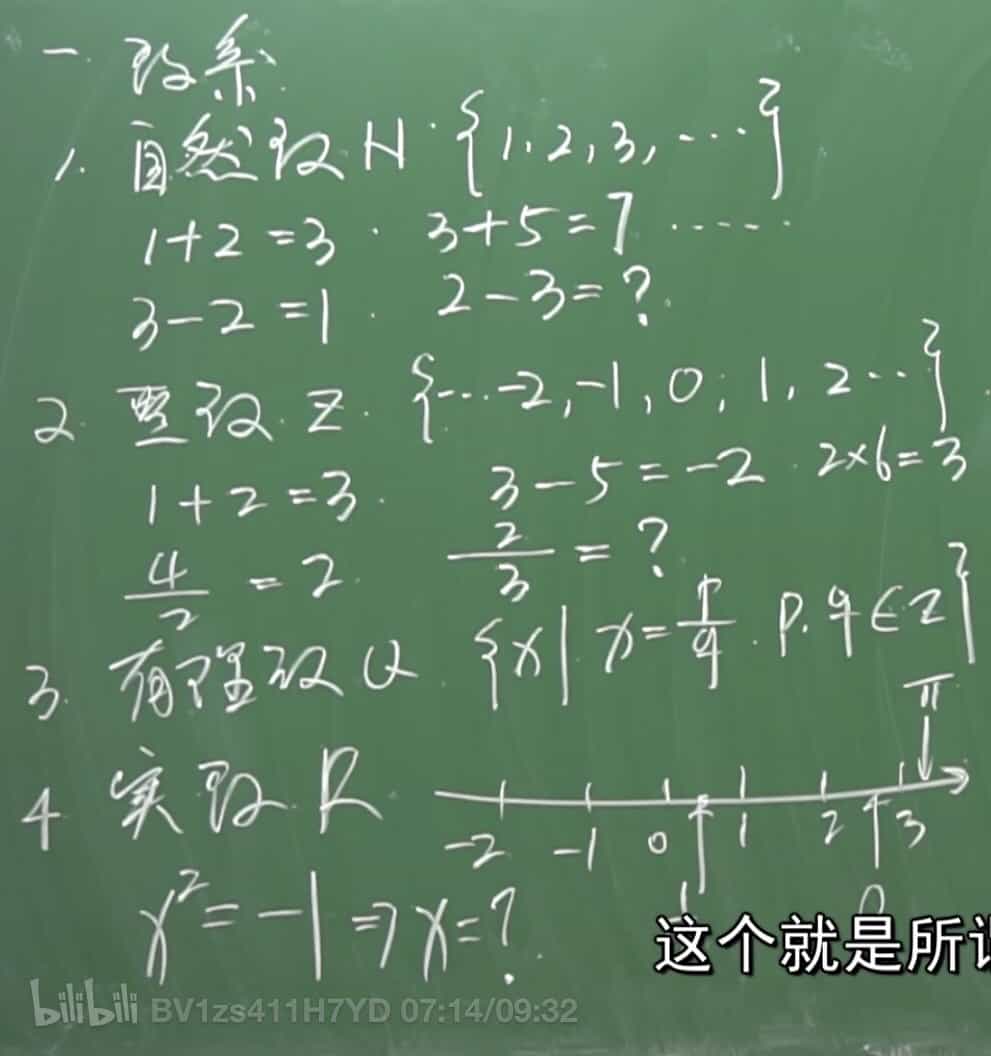 一. 数系.
1. 自然数 N. {1, 2, 3, …}
1+2=3. 3+5=7 ……
3-2=1. 2-3=?
2. 整数 Z. {…-2, -1, 0, 1, 2…}
1+2=3. 3-5=-2. 2×6=3
4/2 = 2. 2/3 = ?
3. 有理数 Q. {x | x=p/q. p.q∈Z}
π
4. 实数 R.
-2 -1 0 1 2 3
x²=-1 => x=?
这个就是所
bilibili BV1zs411H7YD 07:14/09:32